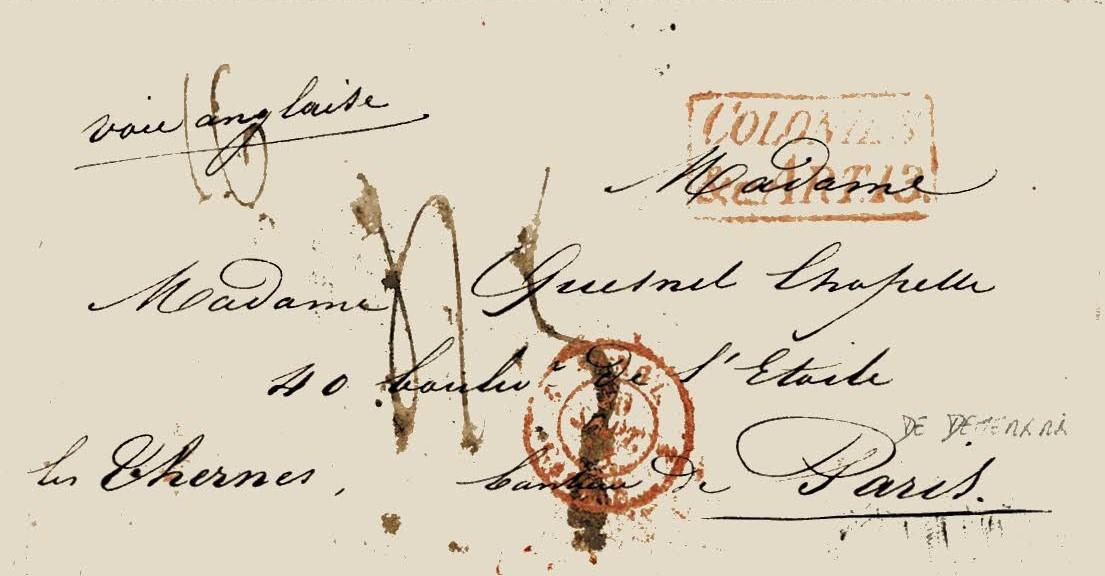 voie anglaise
COLONIES
&c ART.13.
Madame
Madame Quesnel Chapelle
40 boulv.ᵗ de l'Etoile
les Thernes, banlieue de Paris.
DE DEMERARA